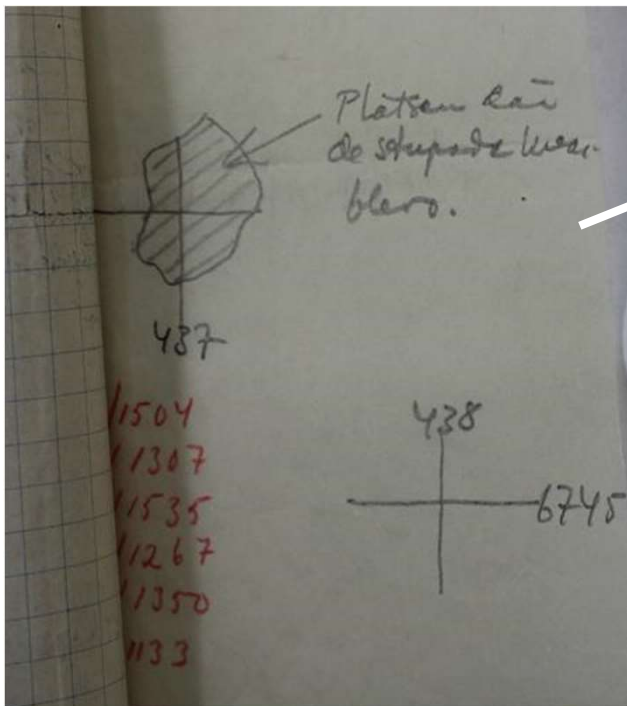 Platsen där
de stupade kvar-
blevo.
437
1504
1307
1535
1267
1350
1133
438
6745